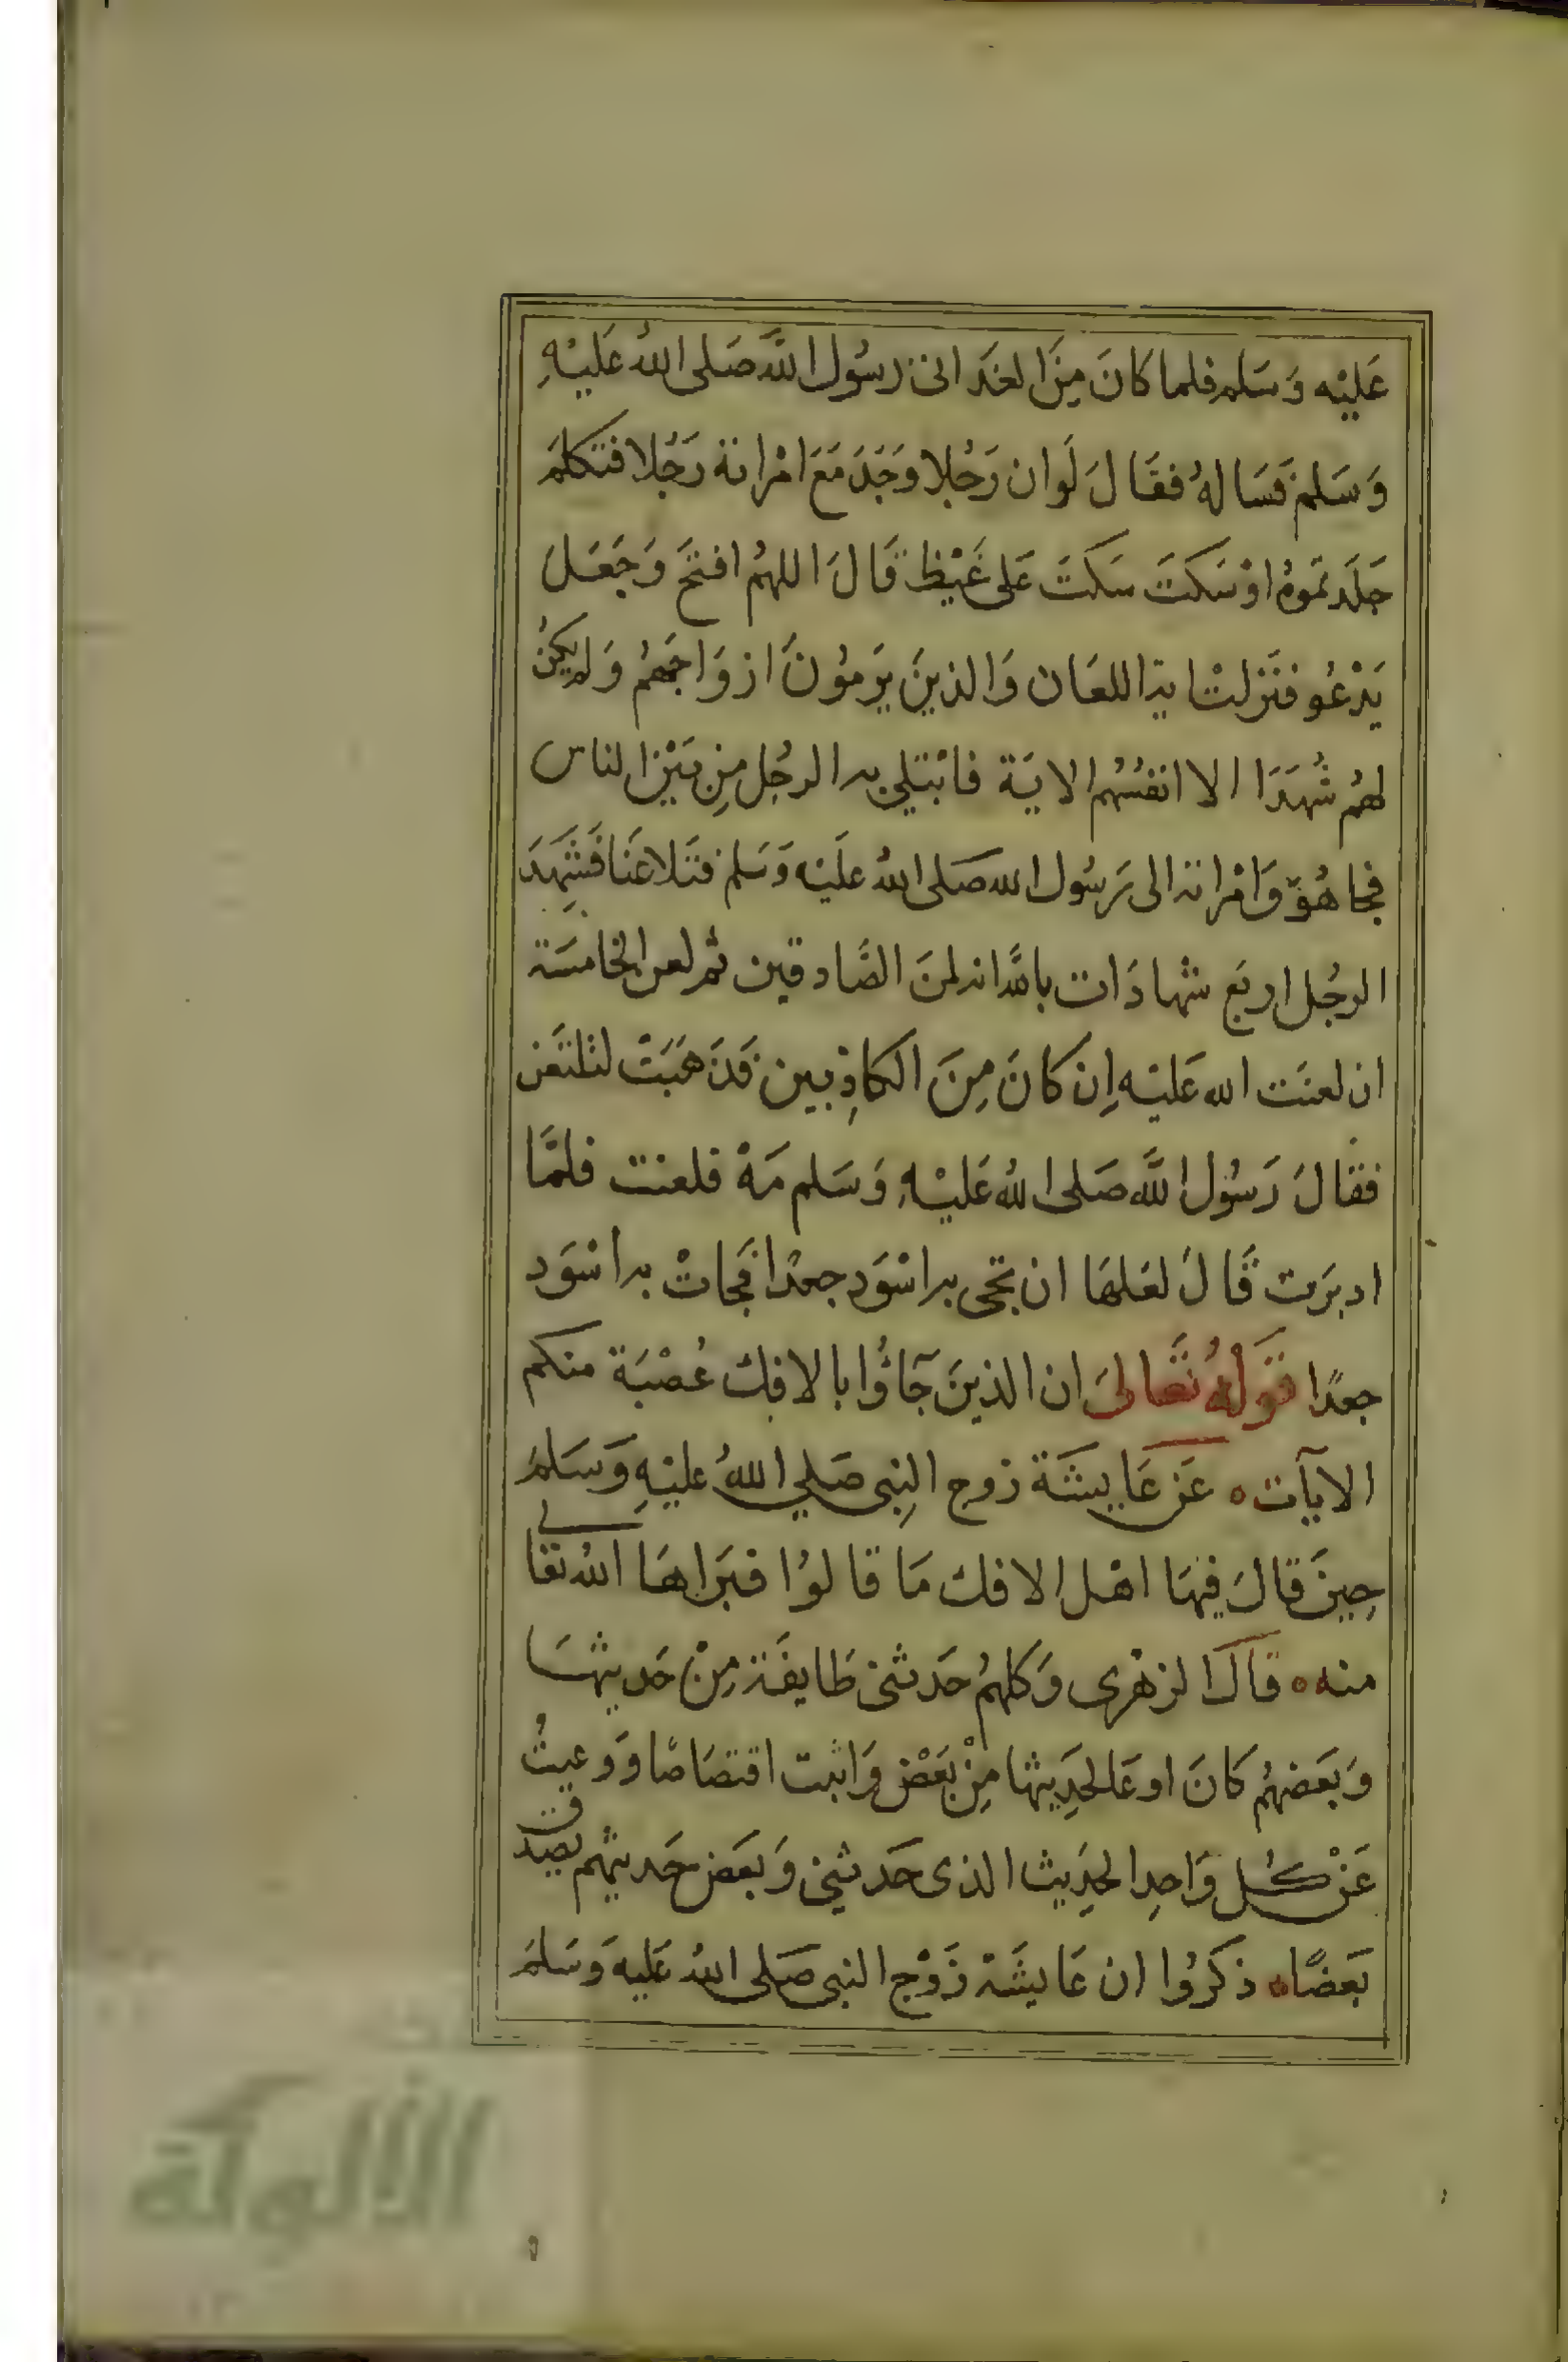 عَلَيْه وَسَلم فلما كانَ مِنَ الغَد اتى رسُول اللَّه صَلى اللهُ عَليْهِ
وَسَلم فَسَالهُ فقَالَ لَوان رَجُلا وَجَدَ مَعَ امْراته رَجُلا فتكلمَ
جَلَدتمَوهُ اوْ سَكتَ سَكتَ عَلى غَيْظ قَالَ اللهُم افتحَ وَجَعَلَ
يَدْعُو فنَزلتْ اية اللعَان وَالذينَ يَرمُونَ ازوَاجَهمُ وَلم يكنُ
لهُم شُهَدَا الا انفسُهُم الايَة فابْتلى به الرجُل مِن بَيْن الناس
فجا هُوَ وَامْراته الى رَسُول الله صَلى اللهُ عَليْه وَسَلم فتَلاعَنا فَشَهِدَ
الرجُل اربَع شهادَات بالله انه لمنَ الصَّادقين ثم لعن الخامسَة
ان لعنَت الله عَليْه اِن كانَ مِنَ الكاذِبين فَذَهَبَتْ لتلتعَن
فقالَ رَسُول اللَّه صَلى اللهُ عَليْهِ وَسَلم مَهْ فلعنت فلمَّا
ادبرَت قَالَ لعَلهَا ان تجى به اسْوَد جعدًا فجَاتْ به اسْوَد
جعدًا قَولهُ تعَالىَ ان الذينَ جَآؤُا بالافِك عُصْبَة منكم
الايآت ه عَن عَايشَة زوج النِبى صَلي اللهُ عليْهِ وَسَلمَ
حِينَ قالَ فيهَا اهْل الافك مَا قالوُا فبَراهَا اللهُ تعالى
منه ه قالَ الزهْرى وَكلهُم حَدثنى طَايفَة مِنْ حَديثهَا
وَبَعَضهُم كَانَ اوعَا لحَدِيثها مِنْ بَعَض وَاثبت اقتصَاصًا وَوَعيتُ
عَنْ كُل وَاحِد الحَدِيث الذى حَدثنى وَبعَض حَديثهم يصَدق
بَعَضًا ه ذكرُوا ان عَايشَة زَوْج النبى صَلى اللهُ عَليه وَسَلمَ
الألوكة